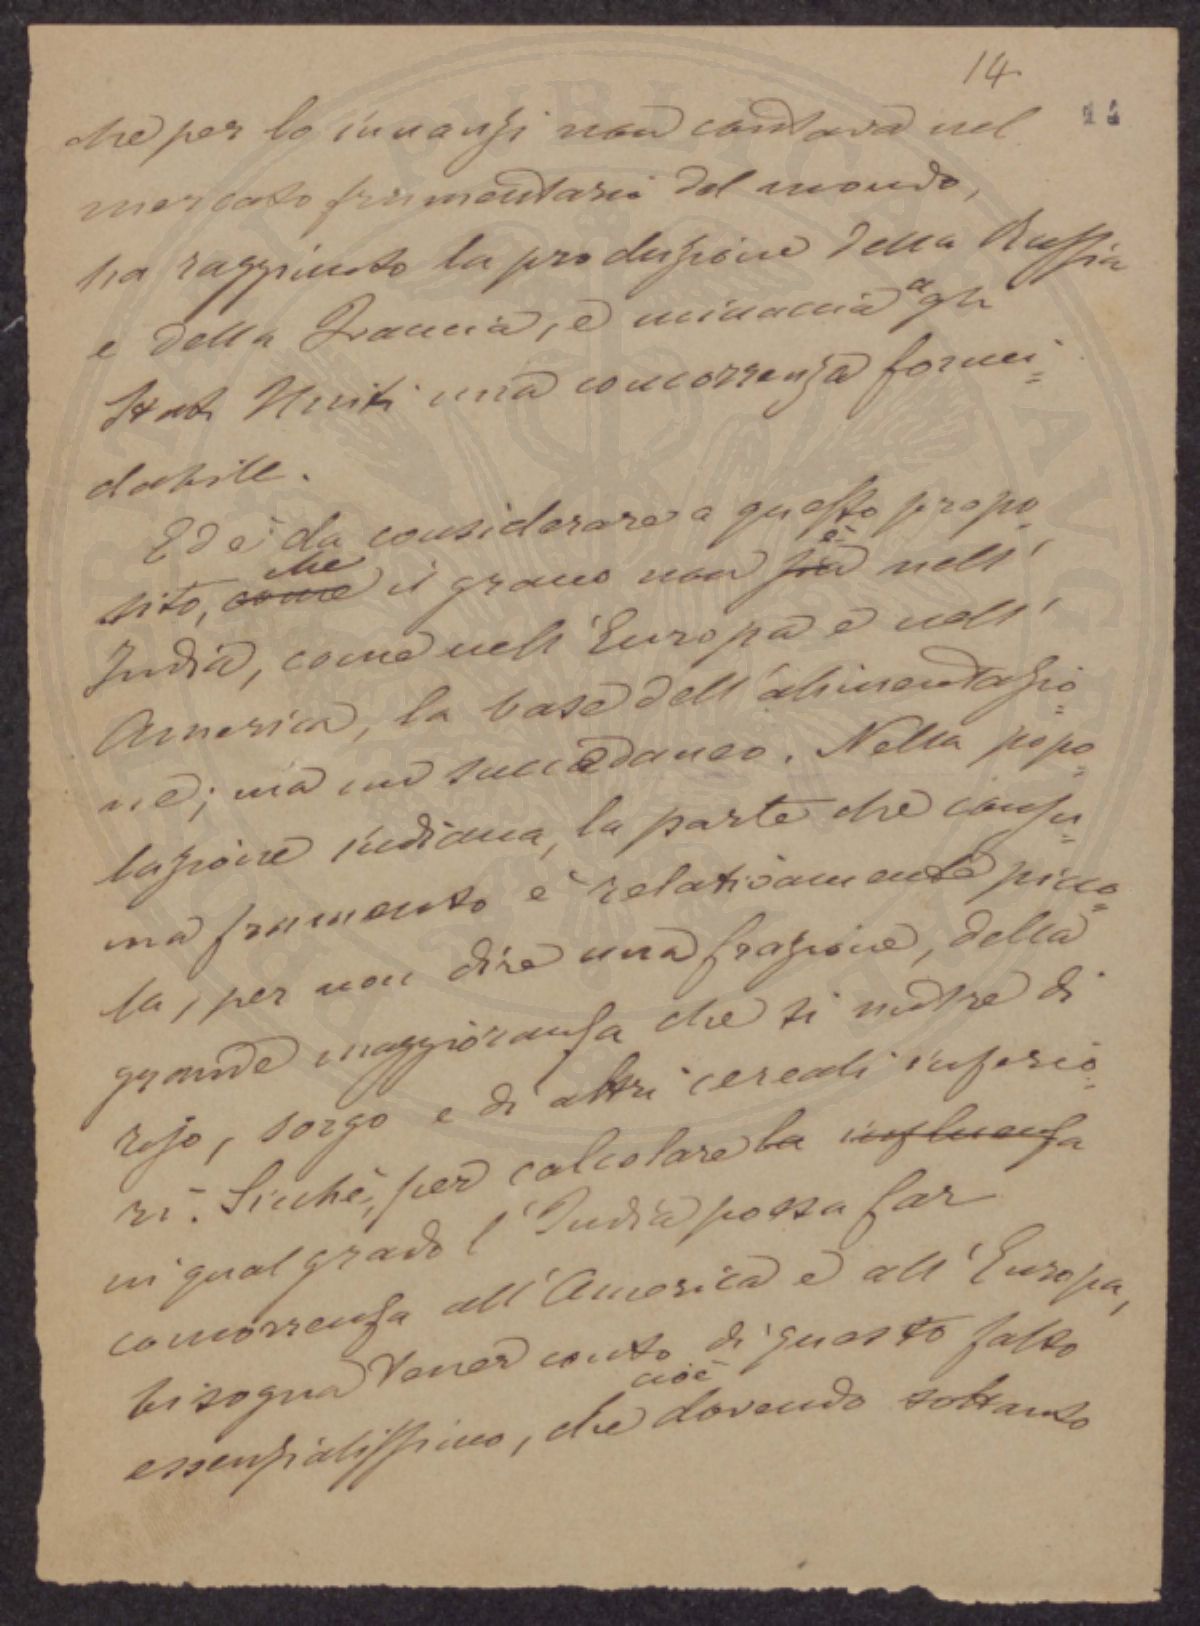 14
14
che per lo innanzi non contava nel
mercato frumentario del mondo,
ha raggiunto la produzione della Russia
e della Francia, e minaccia agli
Stati Uniti una concorrenza formi=
dabile.
Ed è da considerare a questo propo=
sito, come che il grano non sia è nell'
India, come nell'Europa e nell'
America, la base dell'alimentazio=
ne; ma un succedaneo. Nella popo=
lazione indiana, la parte che consu=
ma frumento è relativamente picco=
la, per non dire una frazione, della
grande maggioranza che si nutre di
riso, sorgo e di altri cereali inferio=
ri. Sicchè, per calcolare la influenza
in qual grado l'India possa far
concorrenza all'America e all'Europa,
bisogna tener conto di questo fatto
essenzialissimo, che cioè dovendo soltanto